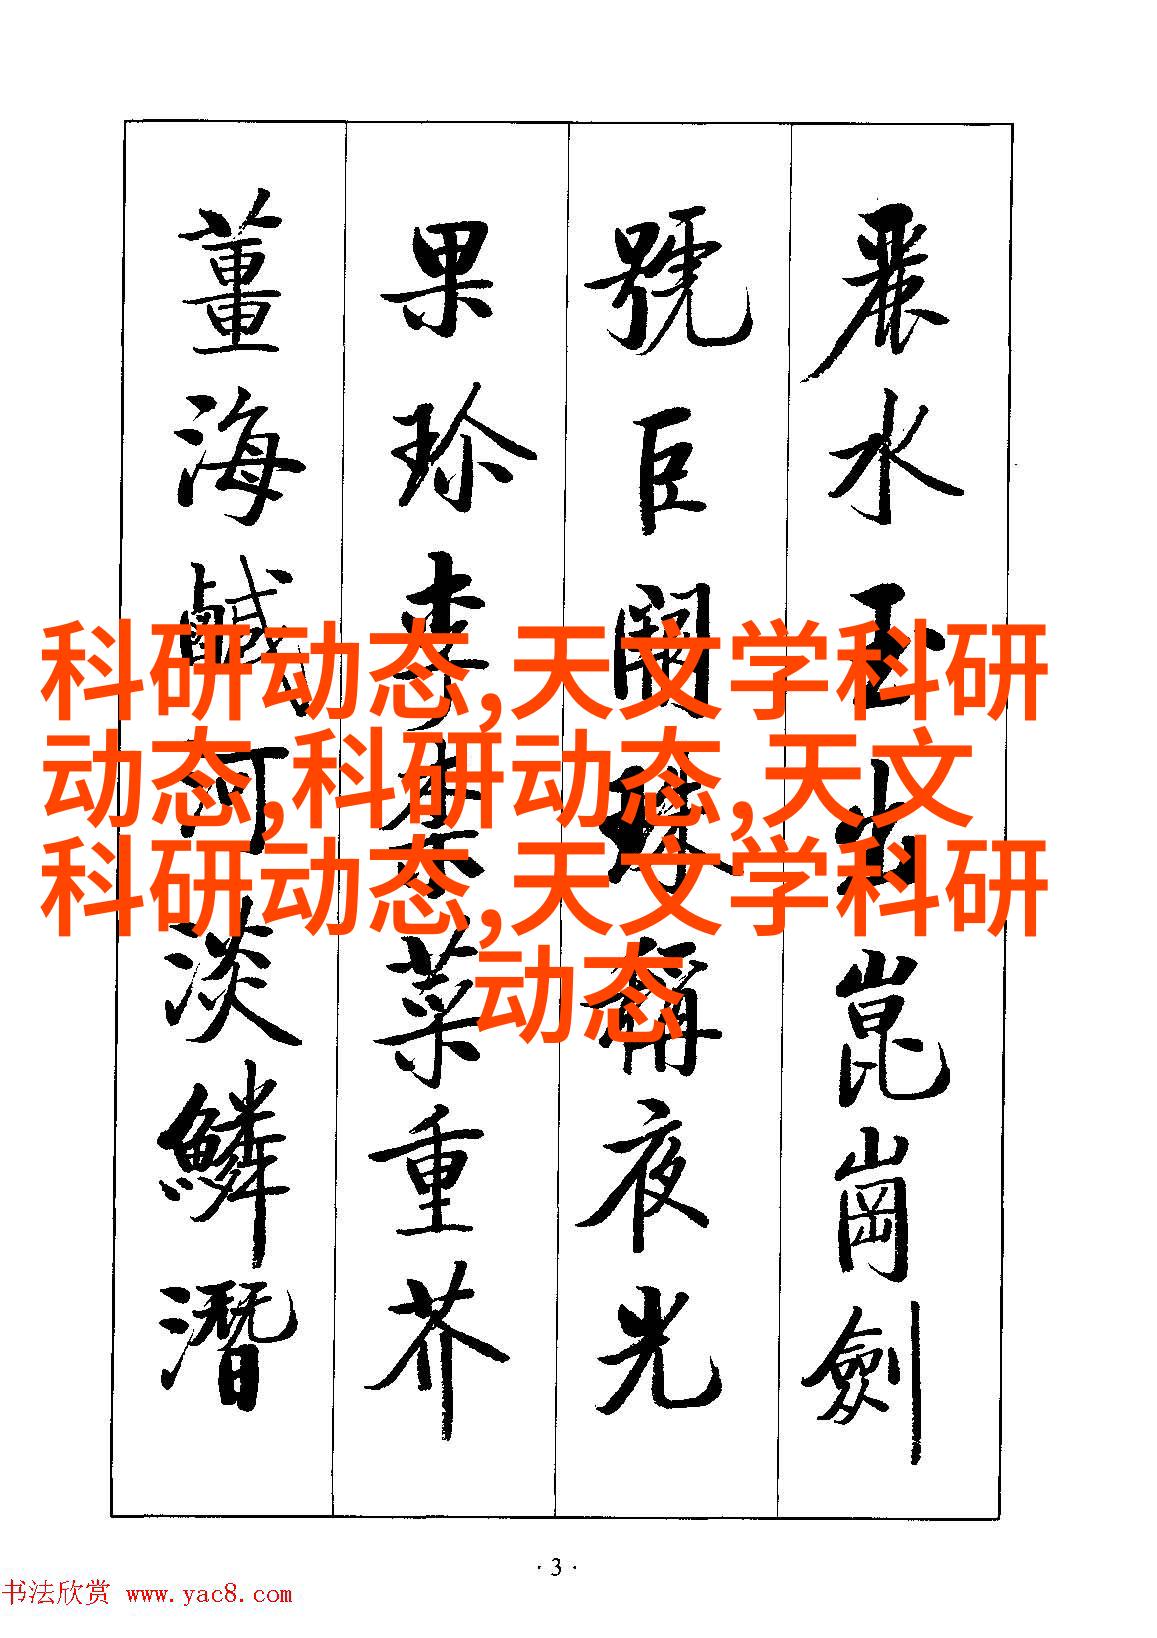 麗水玉出崑崗劍
號巨闕珠稱夜光
果珍李柰菜重芥
薑海鹹河淡鱗潛
科研动态,天文学科研
动态,科研动态,天文
科研动态,天文学科研
动态
·3·
书法欣赏 www.yac8.com